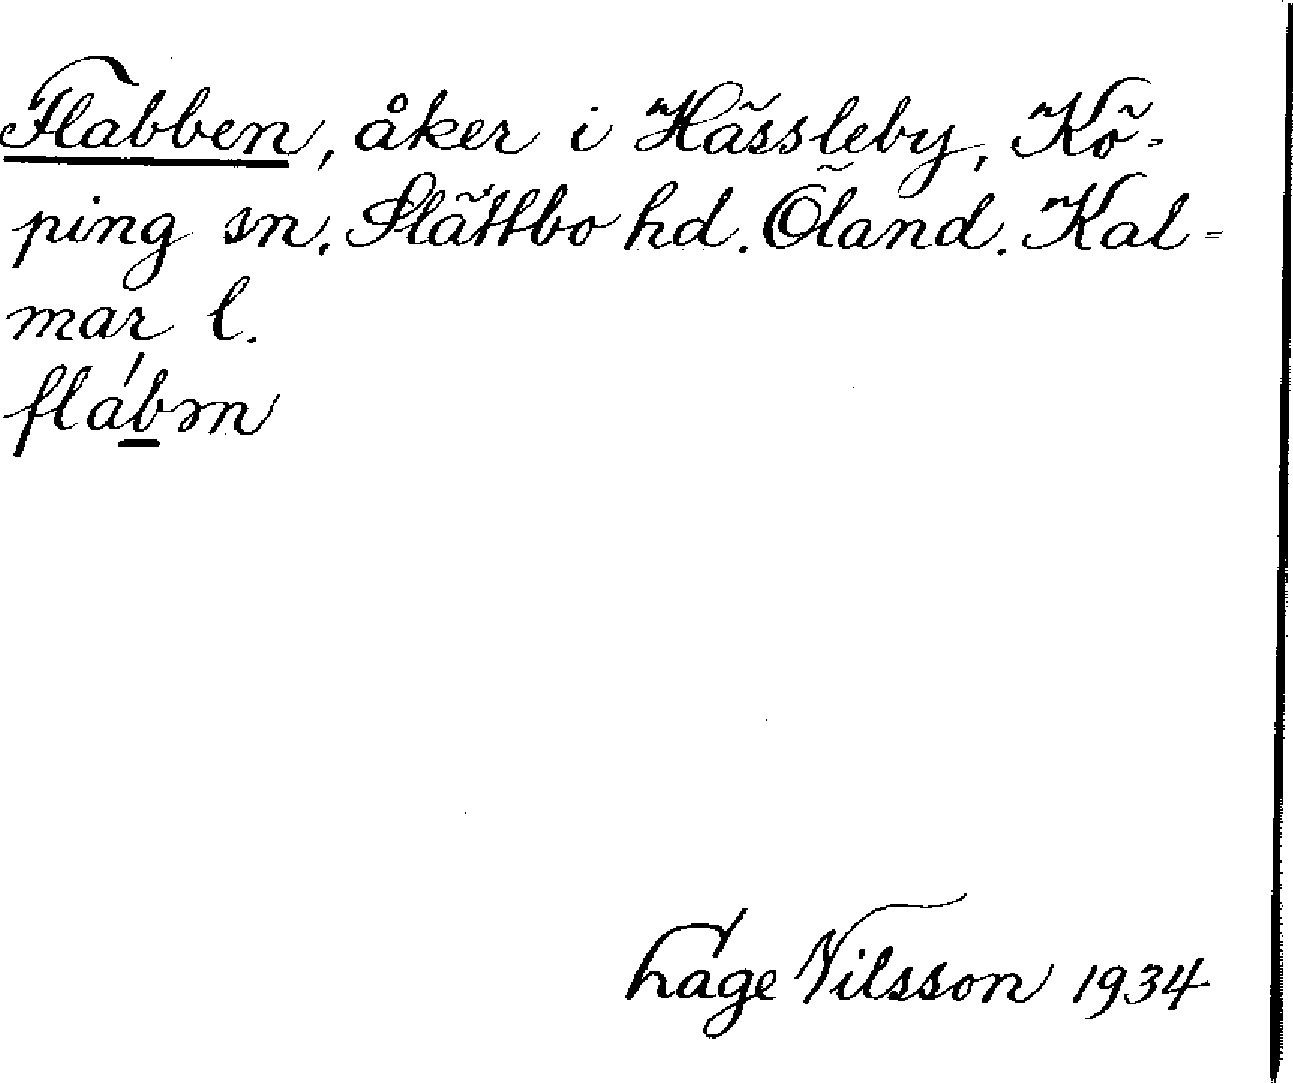 Flabben, åker i Hässleby, Kö-
ping sn. Slättbo hd. Öland. Kal-
mar l.
fláb̲ən
Tage Nilsson 1934